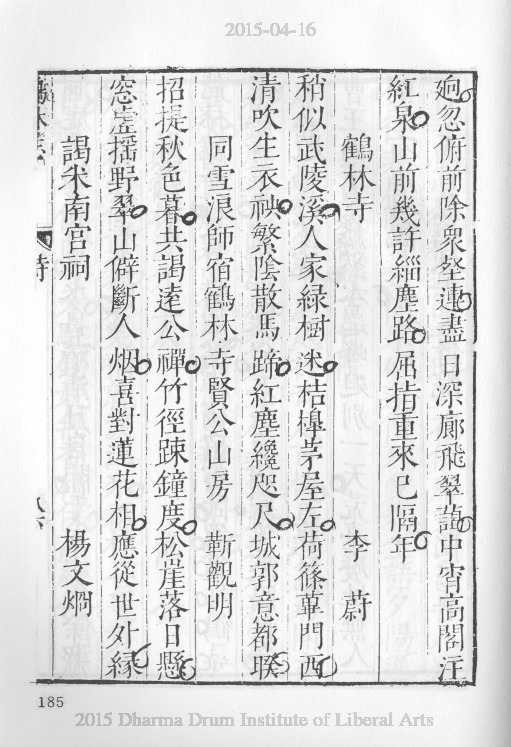 2015-04-16
迥忽俯前除衆壑連盡日深廊飛翠藹中宵高閣注
紅泉山前幾許緇塵路屈指重來已隔年
鶴林寺 李蔚
稍似武陵溪人家緑樹迷桔橰茅屋左荷篠蓽門西
清吹生衣袂繁陰散馬蹄紅塵纔咫尺城郭意都暌
同雪浪師宿鶴林寺賢公山房 靳觀明
招提秋色暮共謁逺公禪竹徑踈鐘度松崖落日懸
窓虚揺野翠山僻斷人烟喜對蓮花相應從世外縁
謁米南宫祠 楊文烱
詩
185
2015 Dharma Drum Institute of Liberal Arts